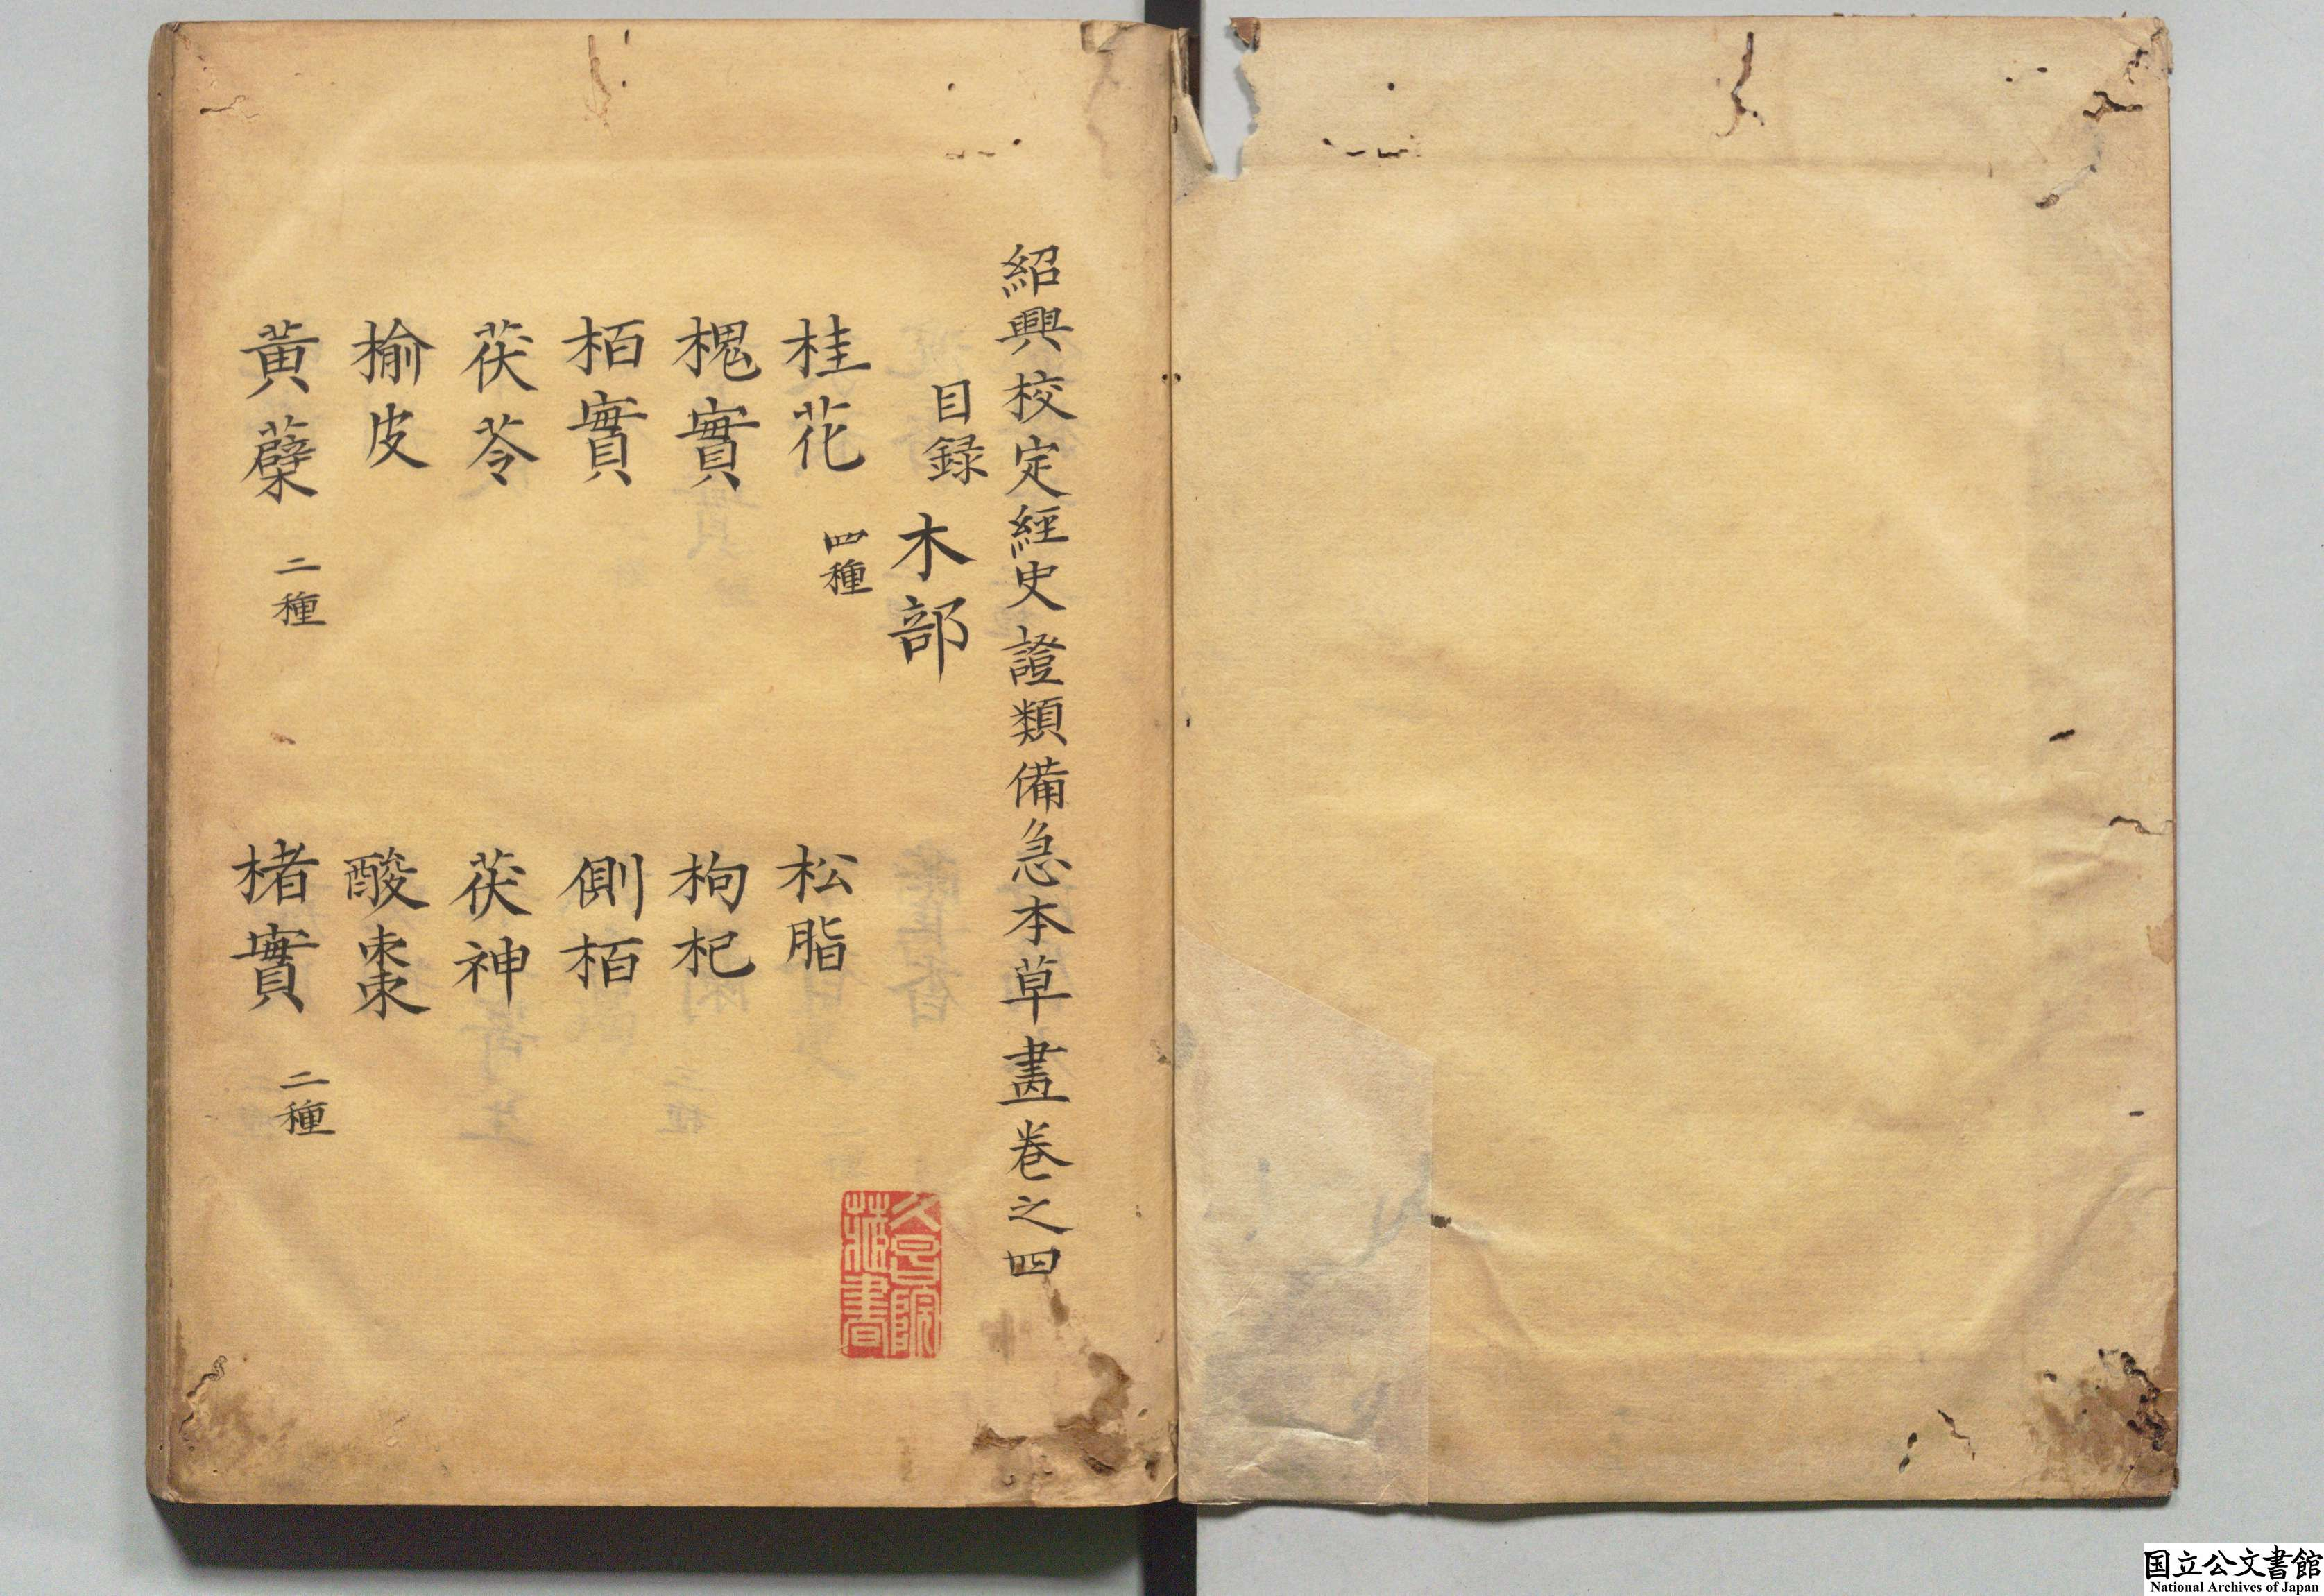 紹興校定經史證類備急本草畫卷之四
目録
木部
桂花 四種
松脂
槐實
枸杞
栢實
側栢
茯苓
茯神
榆皮
酸棗
黃蘗 二種
楮實 二種
藏書
国立公文書館
National Archives of Japan